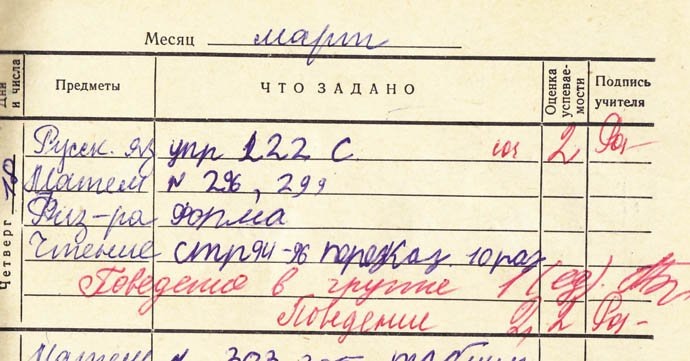 Месяц март
Дни и числа
Предметы
ЧТО ЗАДАНО
Оценка успевае-мости
Подпись учителя
Четверг 10
Русск. яз упр 122 с. 2
Матем № 296, 299
Физ-ра форма
Чтение стр 94-96
Поведение в группе 1 (ед).
Поведение 2, 2
Матем № 303